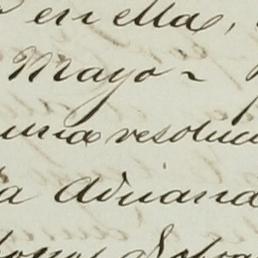 en ella,
Mayo
una resoluci
la Aduana